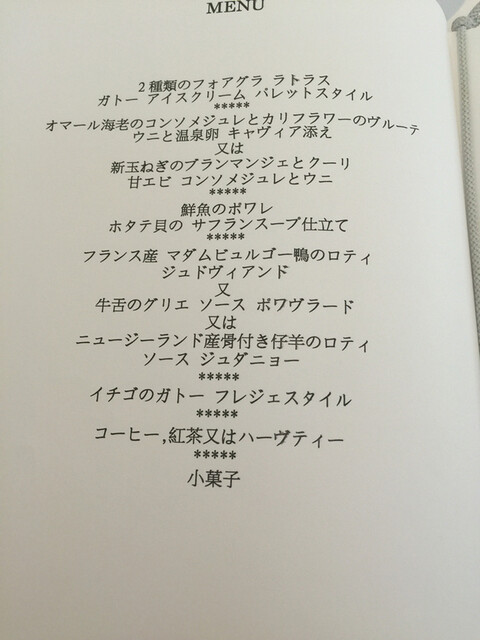 MENU
2種類のフォアグラ ラトラス
ガトー アイスクリーム パレットスタイル
*****
オマール海老のコンソメジュレとカリフラワーのヴルーテ
ウニと温泉卵 キャヴィア添え
又は
新玉ねぎのブランマンジェとクーリ
甘エビ コンソメジュレとウニ
*****
鮮魚のポワレ
ホタテ貝の サフランスープ仕立て
*****
フランス産 マダムビュルゴー鴨のロティ
ジュドヴィアンド
又
牛舌のグリエ ソース ポワヴラード
又は
ニュージーランド産骨付き仔羊のロティ
ソース ジュダニョー
*****
イチゴのガトー フレジェスタイル
*****
コーヒー,紅茶又はハーヴティー
*****
小菓子